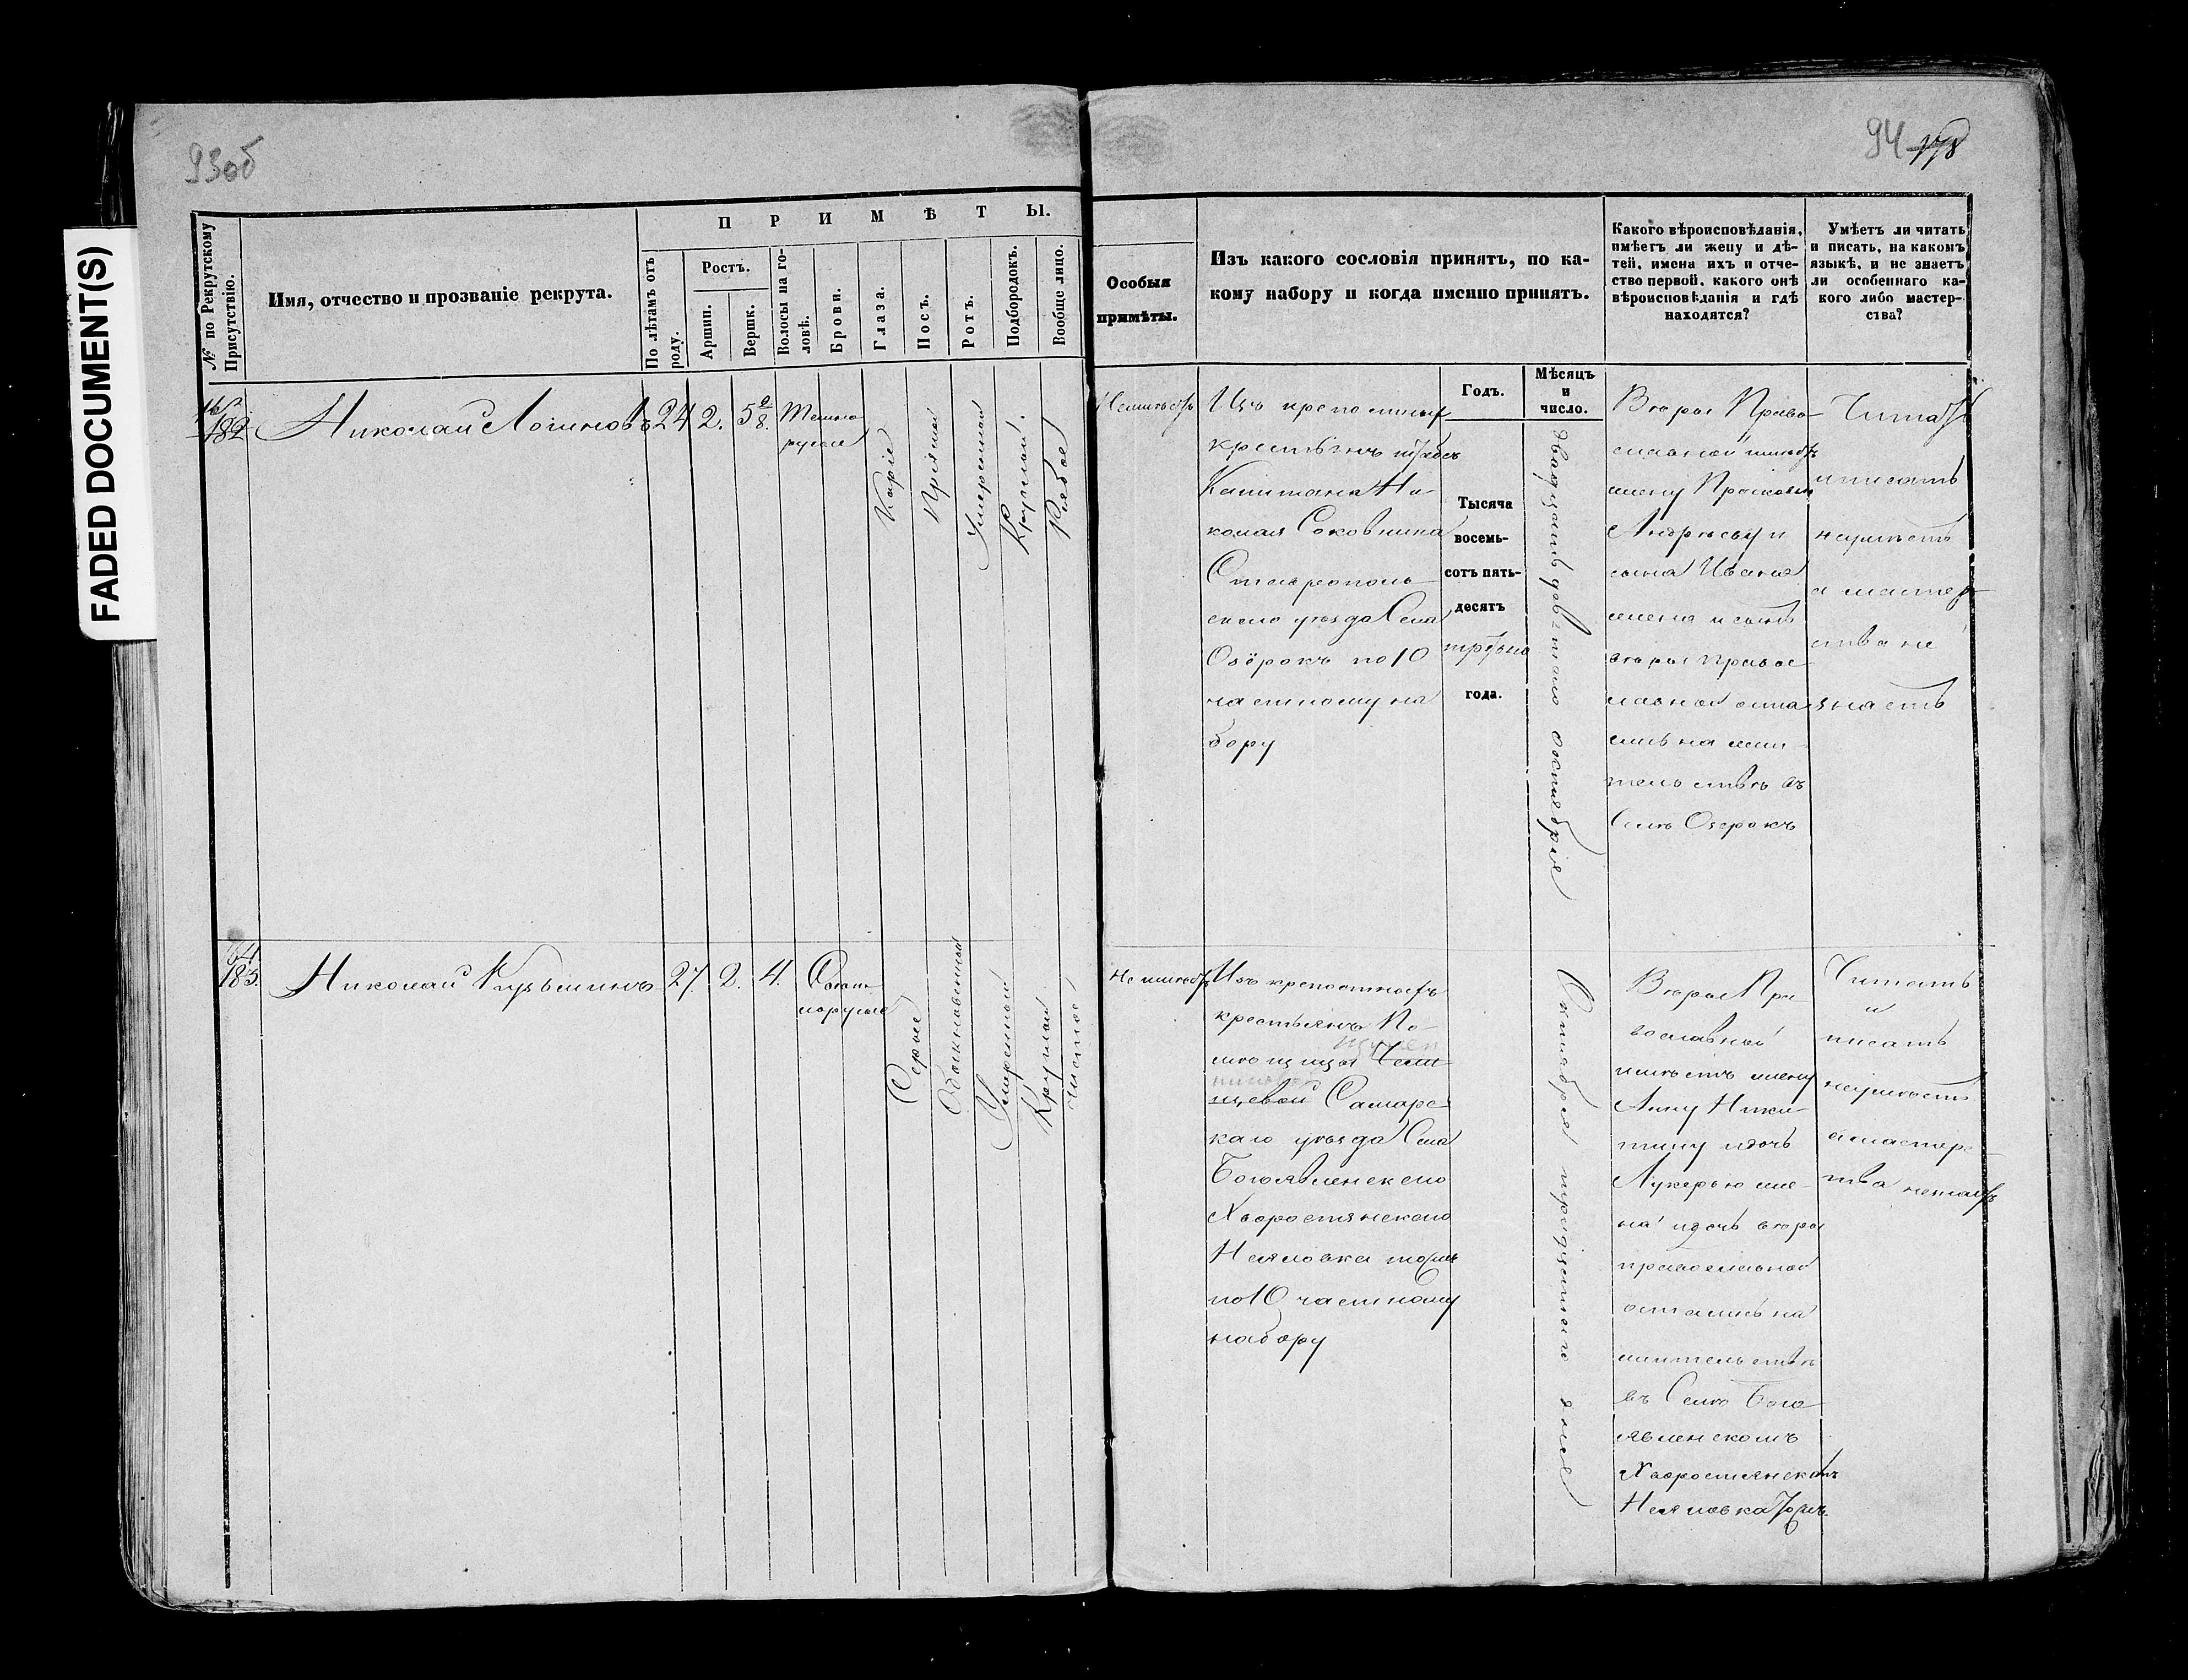 FADED DOCUMENT(S)
93об
94 178
№ по Рекрутскому Присутствію.
Имя, отчество и прозваніе рекрута.
ПРИМѢТЫ.
По лѣтамъ отъ роду.
Ростъ.
Аршин.
Вершк.
Волосы на головѣ.
Брови.
Глаза.
Носъ.
Ротъ.
Подбородокъ.
Вообще лицо.
Особыя
примѣты.
Изъ какого сословія принятъ, по ка-
кому набору и когда именно принятъ.
Какого вѣроисповѣданія,
имѣетъ ли жену и дѣ-
тей, имена ихъ и отче-
ство первой, какого онѣ
вѣроисповѣданія и гдѣ
находятся?
Умѣетъ ли читать
и писать, на какомъ
языкѣ, и не знаетъ
ли особеннаго ка-
кого либо мастер-
ства?
Годъ.
Мѣсяцъ
и
число.
182
Николай Логиновъ
24
2.
5 2/8.
Темно
русые
Каріе
Прямой
Умѣренный
Круглый.
Рябое
Неимѣетъ
Изъ крепостныхъ
крестьянъ штабсъ
Капитана Ни
колая Соковнина
Ставрополь
скаго уѣзда Села
Озёрокъ по 10
частному на
бору
Тысяча
восемь-
сотъ пять-
десятъ
третьяго
года.
Двадцать девятаго октября
Вѣры Право
славной имѣетъ
жену Прасковью
Андрѣеву и
сына Ивана
жена и сынъ
вѣры правос
лавной оста
лись на жи
тельствѣ въ
Селѣ Озеркахъ
Читать
и писать
неумѣетъ
а мастер
ства не
знаетъ
183.
Николай Кузьминъ
27.
2.
4.
Свѣтло
русые
Серые
Обыкновенный
Умѣренный
Круглый
Чистое
Не имѣетъ
Изъ крепостныхъ
крестьянъ По
мѣщицы
Самарс
каго уѣзда Села
Богоявленскаго
Хворостянскаго
по 10 частному
набору
Октября тридцатаго дня
Вѣры Пра
вославной
имѣетъ жену
Анну Ники
тину и дочь
Лукерью же
на и дочь вѣры
православной
остались на
жительствѣ
въ Селѣ Бого
явленскомъ
Хворостянскомъ
Читать
и
писать
неумѣетъ
а мастерс
тва незнаетъ